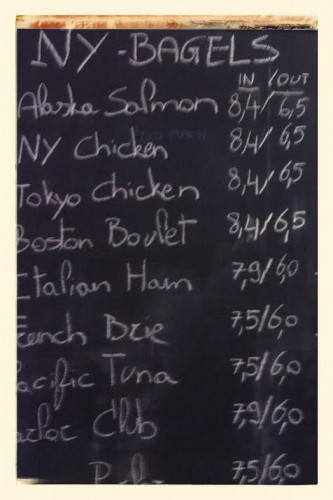 NY-BAGELS
IN /OUT
Alaska Salmon 8,4/6,5
NY Chicken 8,4/6,5
Tokyo Chicken 8,4/6,5
Boston Boulet 8,4/6,5
Italian Ham 7,9/6,0
French Brie 7,5/6,0
acific Tuna 7,5/6,0
Club 7,9/6,0
7,5/6,0